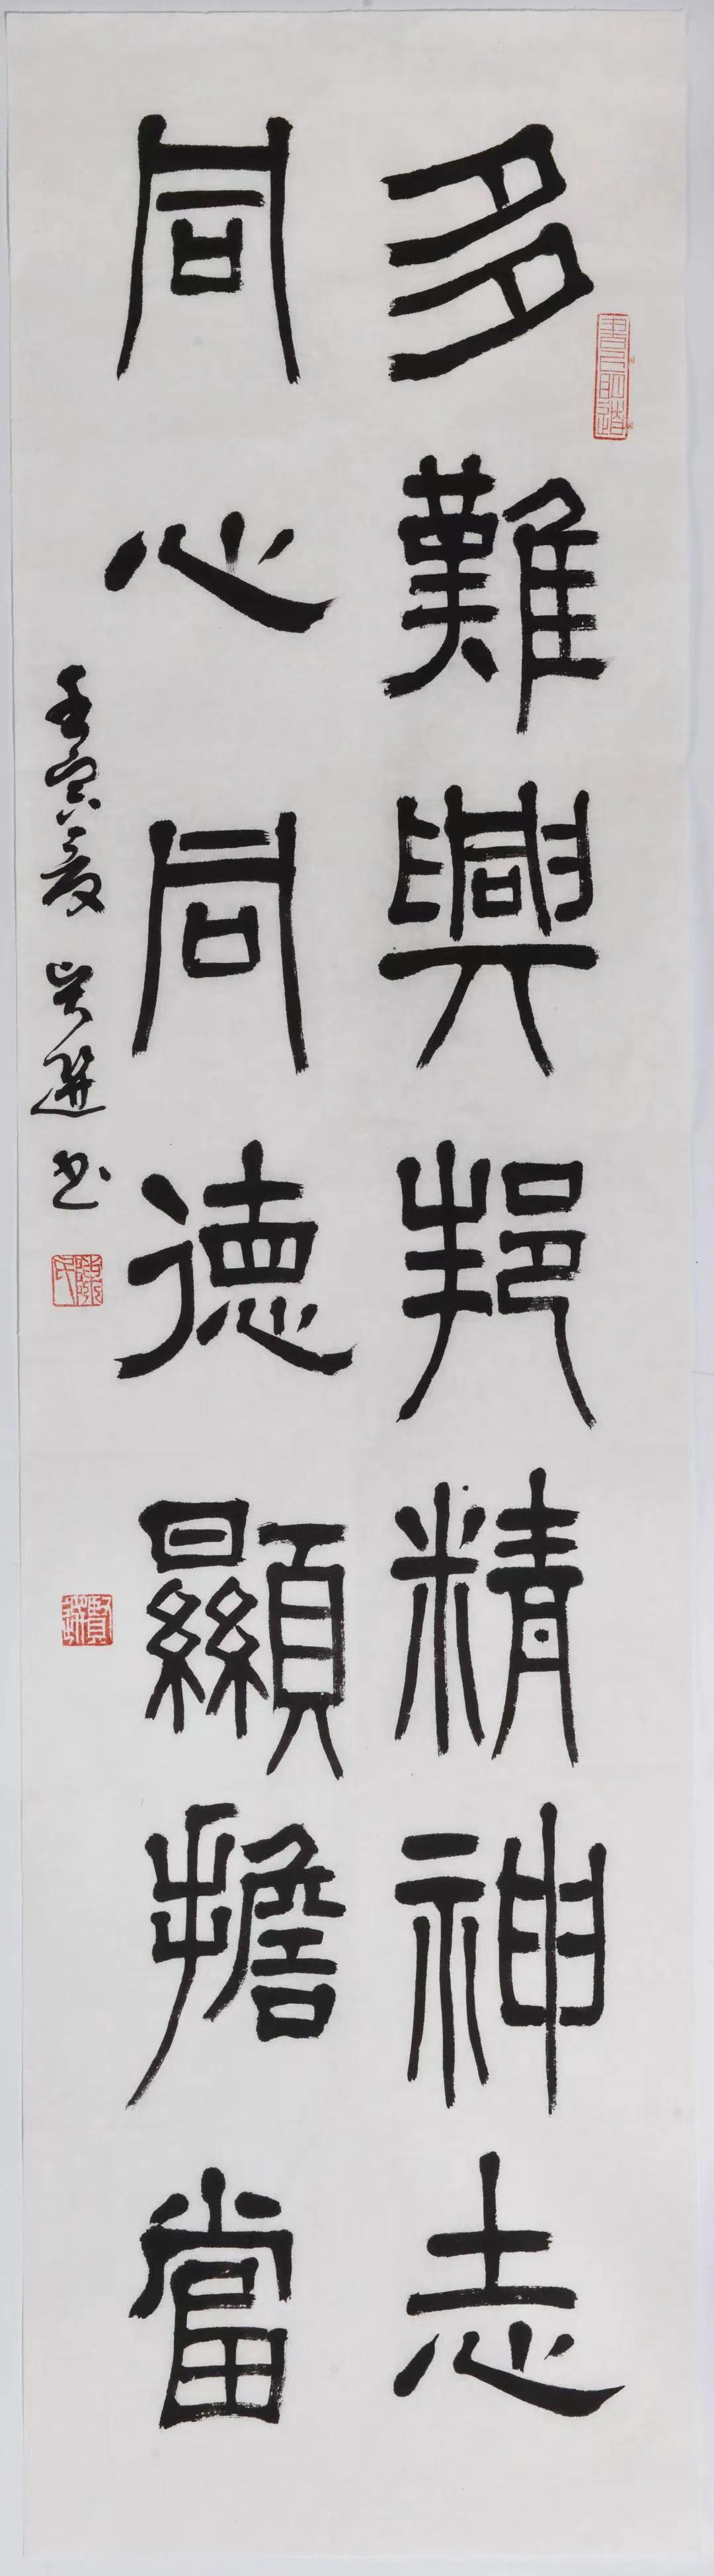 多難興邦精神志
同心同德顯擔當
壬寅夏
書